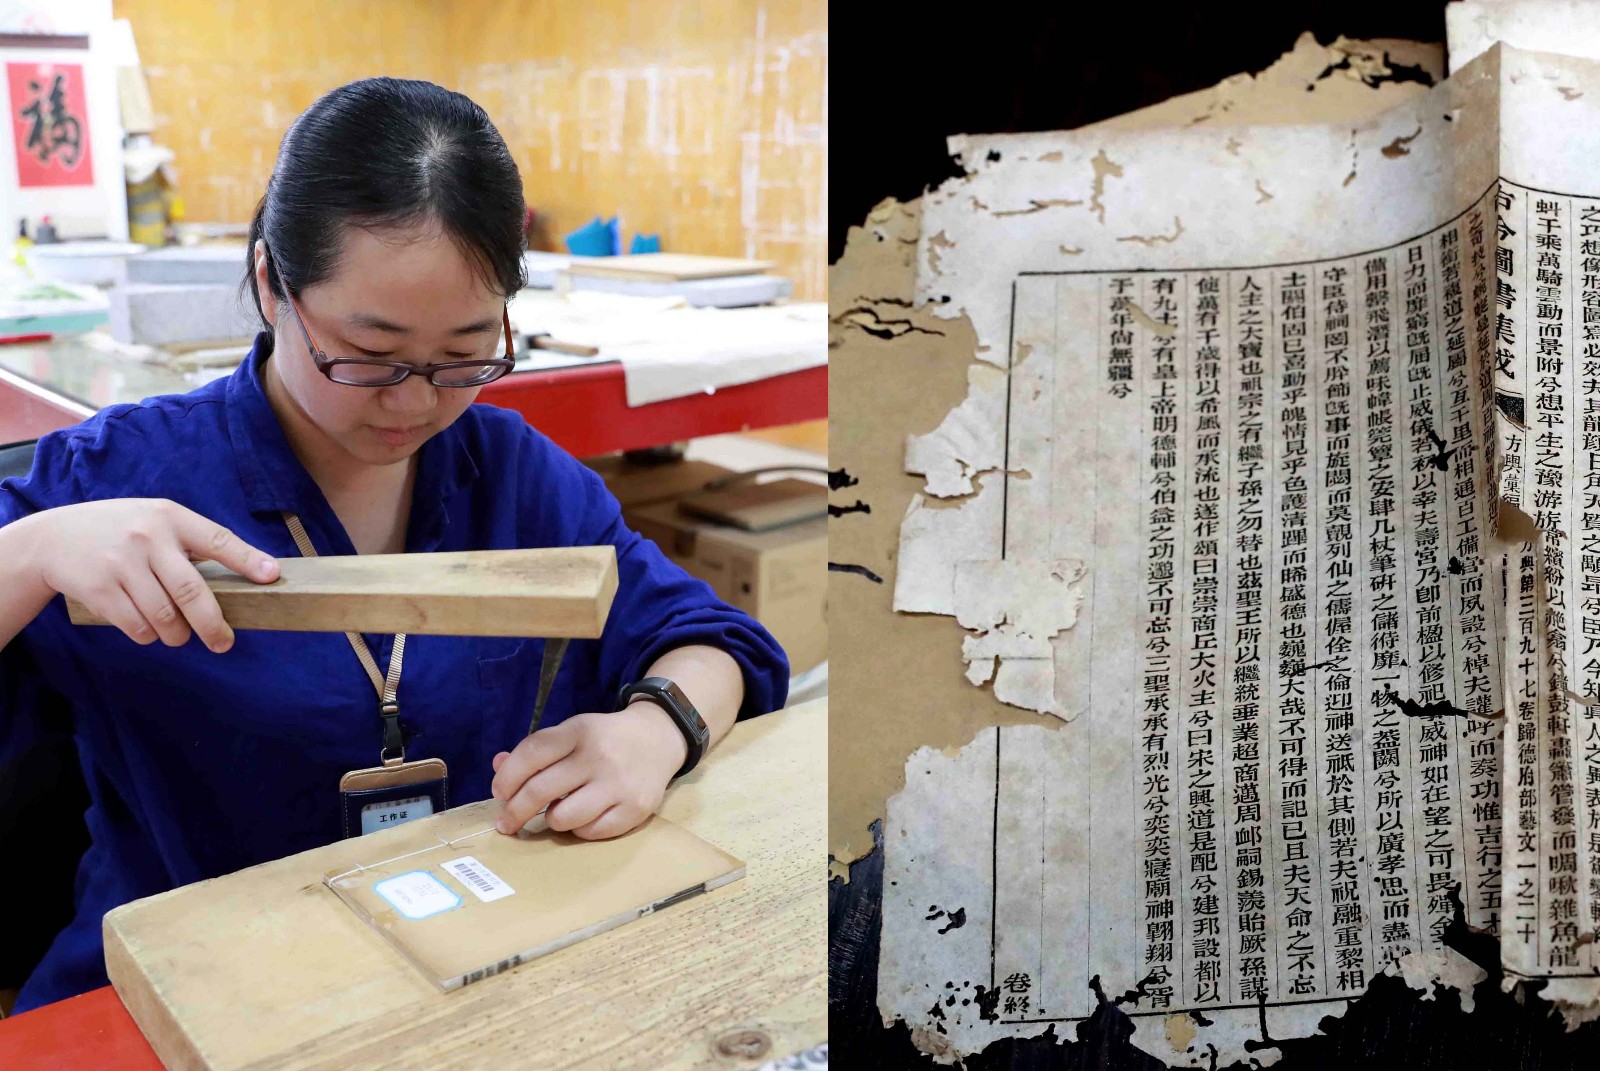 福
工作证
之巧想像形容圖寫必效夫其龍顔日角天質之顒昂兮臣乃今知真人之異表於是
蚪千乘萬騎雲動而景附兮想平生之豫游旂常繽紛以飛翕兮鐃鼓軒轟簫管發而啁啾雜魚龍
古今圖書集成
方輿彙編
方輿第三百九十七卷歸德府部藝文一之二十
相銜者複道之延屬兮亙千里而相通百工備官而夙設兮棹夫讙呼而奏功惟吉行之五
日力而靡窮旣屆旣止威儀若秩以幸夫壽宮乃卽前楹以修祀威神如在望之可畏殫金
備用罄飛潛以薦味幃帳筦簟之安肆几杖筆硏之儲偫靡一物之葢闕兮所以廣孝思而盡
守臣侍祠罔不胙飾旣事而旋闓而莫覿列仙之儔偓佺之倫迎神送祗於其側若夫祝融重黎相
土閼伯固已喜動乎魄情見乎色護清蹕而晞盛德也巍巍大哉不可得而記已且夫天命之不忘
人主之大寶也祖宗之有繼子孫之勿替也茲聖王所以繼統垂業超商邁周卹嗣錫羨貽厥孫謀
使萬有千歲得以希風而承流也遂作頌曰崇崇商丘大火主兮曰宋之興道是配兮建邦設都以
有九土兮有皇上帝明德輔兮伯益之功邈不可忘兮三聖承承有烈光兮奕奕寢廟神翺翔兮胥
于萬年尙無疆兮
卷終